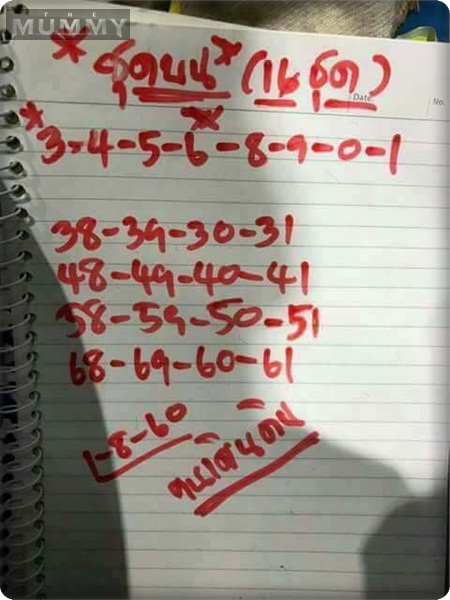 MUMMY
* ชุดบน * ( ชุด)
Date.
No.
* 3-4-5-6-8-9-0-1
38-39-30-31
48-49-40-41
58-59-50-51
68-69-60-61
1-8-60
คนเดินดิน